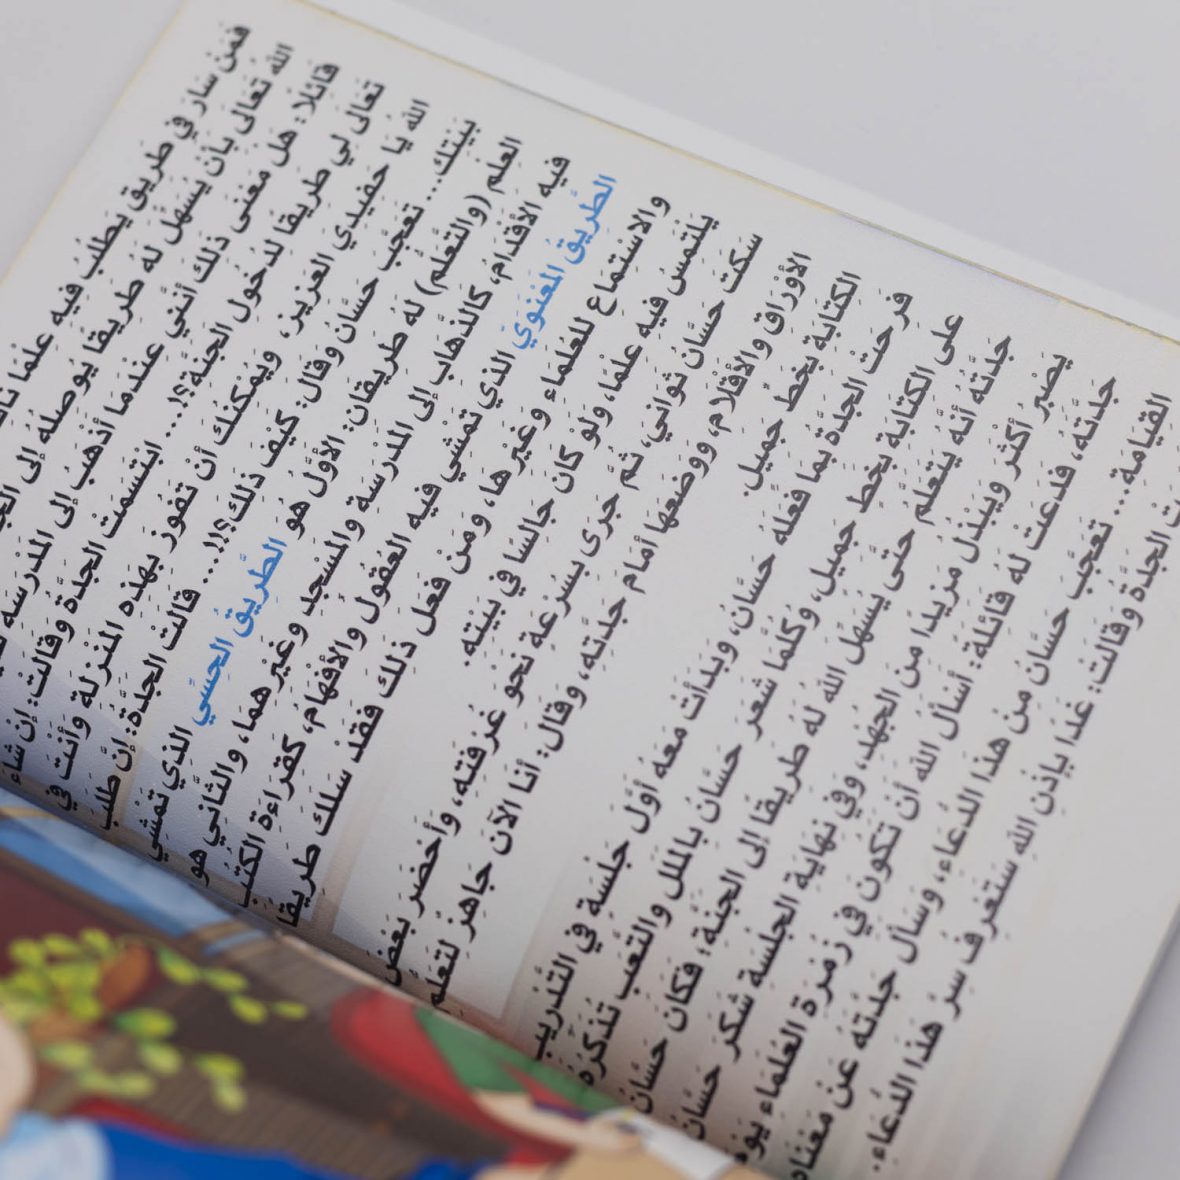 فَمَنْ سَارَ فِي طَرِيقٍ يَطْلُبُ فِيهِ عِلْمًا
اللهُ تَعَالَى بِأَنْ يُسَهِّلَ لَهُ طَرِيقًا يُوصِلُهُ إِلَى
قَائِلًا: هَلْ مَعْنَى ذَلِكَ أَنَّنِي عِنْدَمَا أَذْهَبُ إِلَى المَدْرَسَةِ
تَعَالَى لِي طَرِيقًا لِدُخُولِ الجَنَّةِ؟!... ابْتَسَمَتْ الجَدَّةُ وَقَالَتْ: إِنْ شَاءَ
اللهُ يَا حَفِيدِي العَزِيز، وَيُمْكِنُكَ أَنْ تَفُوزَ بِهَذِهِ المَنْزِلَةِ وَأَنْتَ فِي
بَيْتِكَ... تَعَجَّبَ حَسَّانُ وَقَالَ: كَيْفَ ذَلِكَ؟!!... قَالَتْ الجَدَّةُ: إِنَّ طَلَبَ
العِلْمِ (وَالتَّعَلُّمِ) لَهُ طَرِيقَانِ: الأَوَّلُ هُوَ الطَّرِيقُ الحِسِّي الَّذِي تَمْشِي
فِيهِ الأَقْدَامُ، كَالذَّهَابِ إِلَى المَدْرَسَةِ وَالمَسْجِدِ وَغَيْرِهِمَا، وَالثَّانِي هُوَ
الطَّرِيقُ المَعْنَوِيّ الَّذِي تَمْشِي فِيهِ العُقُولُ وَالأَفْهَامُ، كَقِرَاءَةِ الكُتُبِ
وَالاسْتِمَاعِ لِلْعُلَمَاءِ وَغَيْرِهَا، وَمَنْ فَعَلَ ذَلِكَ فَقَدْ سَلَكَ طَرِيقًا
يَلْتَمِسُ فِيهِ عِلْمًا، وَلَوْ كَانَ جَالِسًا فِي بَيْتِهِ.
سَكَتَ حَسَّانُ ثَوَانِيَ، ثُمَّ جَرَى بِسُرْعَةٍ نَحْوَ غُرْفَتِهِ، وَأَحْضَرَ بَعْضَ
الأَوْرَاقِ وَالأَقْلَامِ، وَوَضَعَهَا أَمَامَ جَدَّتِهِ، وَقَالَ: أَنَا الآنَ جَاهِزٌ لِتَعَلُّمِ
الكِتَابَةِ بِخَطٍّ جَمِيلٍ.
فَرِحَتْ الجَدَّةُ بِمَا فَعَلَهُ حَسَّانُ، وَبَدَأَتْ مَعَهُ أَوَّلَ جَلْسَةٍ فِي التَّدْرِيبِ
عَلَى الكِتَابَةِ بِخَطٍّ جَمِيلٍ، وَكُلَّمَا شَعَرَ حَسَّانُ بِالمَلَلِ وَالتَّعَبِ تُذَكِّرُهُ
جَدَّتُهُ أَنَّهُ يَتَعَلَّمُ حَتَّى يُسَهِّلَ اللهُ لَهُ طَرِيقًا إِلَى الجَنَّةِ؛ فَكَانَ حَسَّانُ
يَصْبِرُ أَكْثَرَ وَيَبْذُلُ مَزِيدًا مِنَ الجُهْدِ، وَفِي نِهَايَةِ الجَلْسَةِ شَكَرَ حَسَّانُ
جَدَّتَهُ، فَدَعَتْ لَهُ قَائِلَةً: أَسْأَلُ اللهَ أَنْ تَكُونَ فِي زُمْرَةِ العُلَمَاءِ يَوْمَ
القِيَامَةِ... تَعَجَّبَ حَسَّانُ مِنْ هَذَا الدُّعَاءِ، وَسَأَلَ جَدَّتَهُ عَنْ مَعْنَاهُ
الجَدَّةُ وَقَالَتْ: غَدًا بِإِذْنِ اللهِ سَتَعْرِفُ سِرَّ هَذَا الدُّعَاءِ.